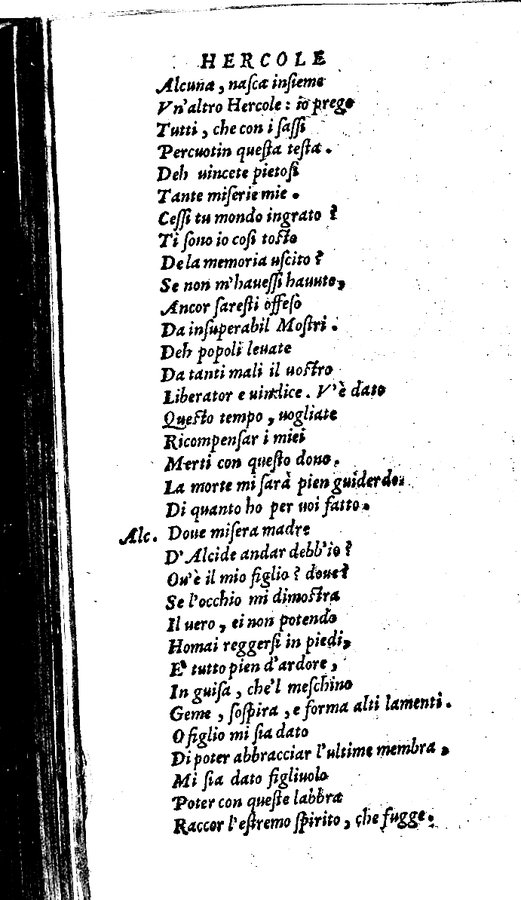 HERCOLE
Alcuna, nasca insieme
Vn'altro Hercole: io prego
Tutti, che con i sassi
Percuotin questa testa.
Deh uincete pietosi
Tante miserie mie.
Cessi tu mondo ingrato?
Ti sono io cosi tosto
De la memoria uscito?
Se non m'hauessi hauuto,
Ancor saresti offeso
Da insuperabil Mostri.
Deh popoli leuate
Da tanti mali il uostro
Liberator e uindice. V'è dato
Questo tempo, uogliate
Ricompensar i miei
Merti con questo dono.
La morte mi sarà pien guiderdo:
Di quanto ho per uoi fatto.
Alc. Doue misera madre
D'Alcide andar debb'io?
Ou'è il mio figlio? doue?
Se l'occhio mi dimostra
Il uero, ei non potendo
Homai reggersi in piedi,
E' tutto pien d'ardore,
In guisa, che'l meschino
Geme, sospira, e forma alti lamenti.
O figlio mi sia dato
Di poter abbracciar l'ultime membra,
Mi sia dato figliuolo
Poter con queste labbra
Raccor l'estremo spirito, che fugge.